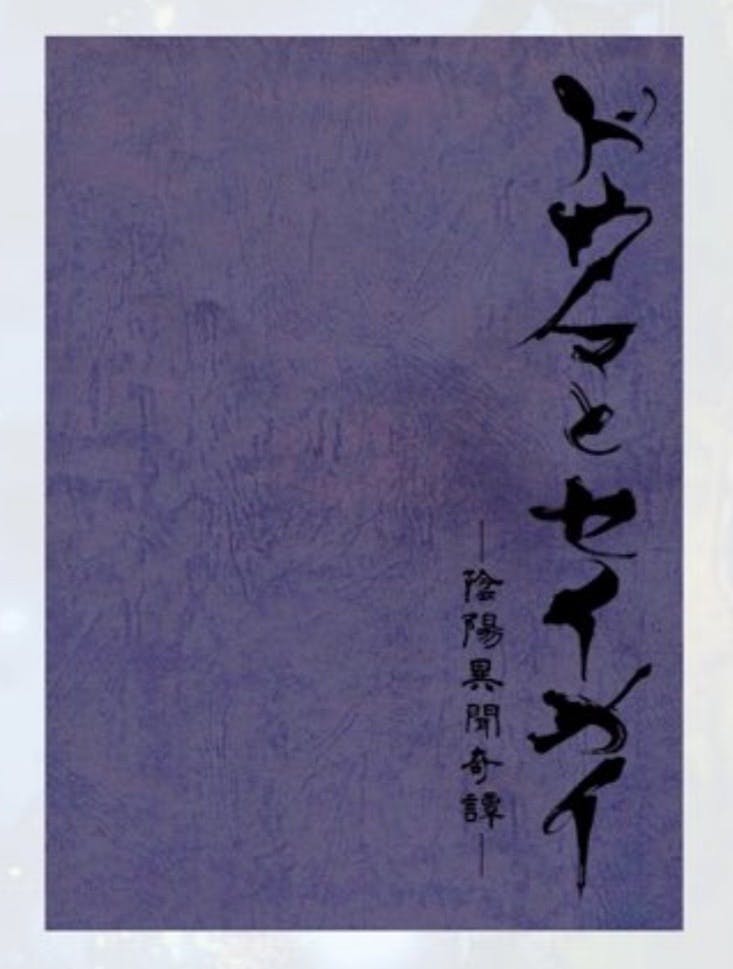 ドウマとセイメイ
―陰陽異聞奇譚―